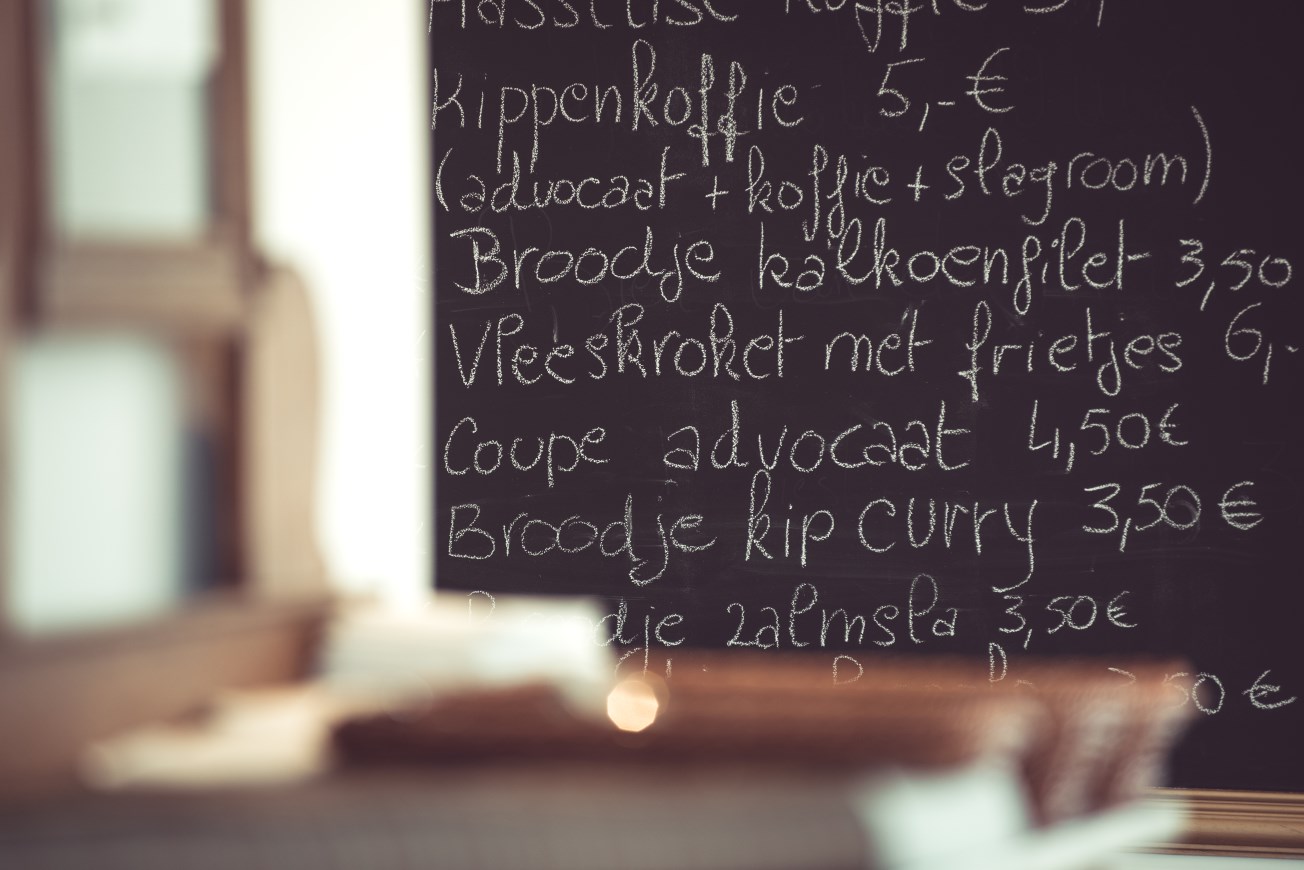 Hasseltse koffie 5,
Kippenkoffie 5,-€
(advocaat + koffie + slagroom)
Broodje kalkoenfilet 3,50
Vleeskroket met frietjes 6,-
Coupe advocaat 4,50€
Broodje kip curry 3,50 €
Broodje zalmsla 3,50€
50 €